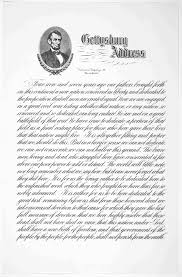 Gettysburg
Address
Four score and seven years ago our fathers brought forth
on this continent a new nation conceived in liberty and dedicated to
the proposition that all men are created equal. Now we are engaged
in a great civil war testing whether that nation or any nation so
conceived and so dedicated can long endure. We are met on a great
battlefield of that war. We have come to dedicate a portion of that
field as a final resting place for those who here gave their lives
that that nation might live. It is altogether fitting and proper that
we should do this. But in a larger sense we can not dedicate
we can not consecrate we can not hallow this ground. The brave
men, living and dead, who struggled here have consecrated it far
above our poor power to add or detract. The world will little note
nor long remember what we say here, but it can never forget what
they did here. It is for us the living rather to be dedicated here to
the unfinished work which they who fought here have thus far so
nobly advanced. It is rather for us to be here dedicated to the
great task remaining before us that from these honored dead we
take increased devotion to that cause for which they gave the last
full measure of devotion that we here highly resolve that these
dead shall not have died in vain that this nation under God
shall have a new birth of freedom and that government of the
people by the people for the people, shall not perish from the earth.